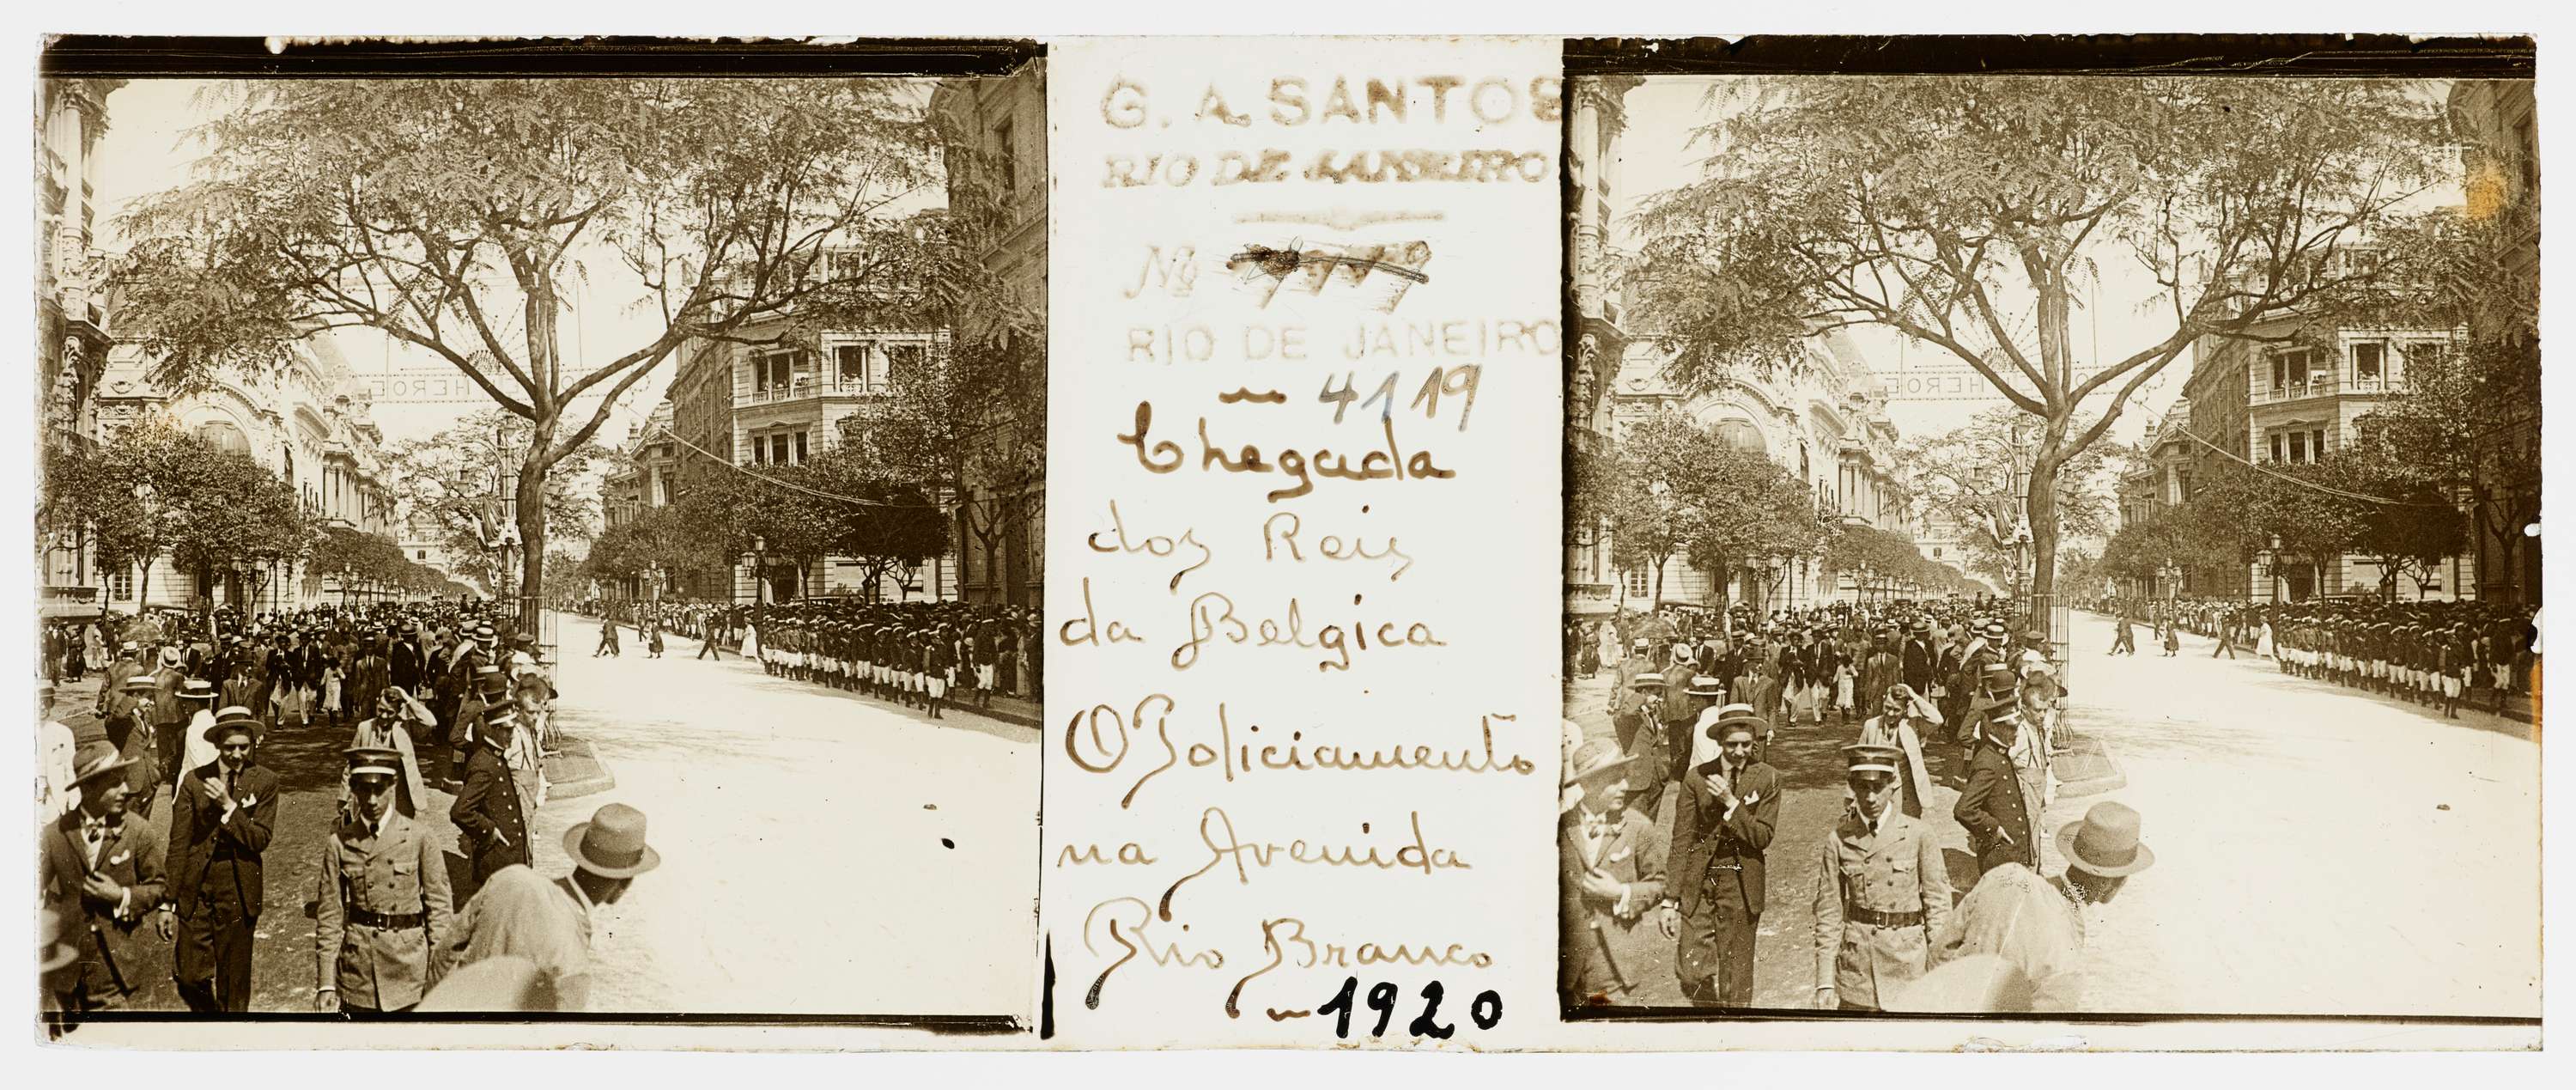 G. A. SANTOS
RIO DE JANEIRO
Nº
RIO DE JANEIRO
4119
Chegada
dos Reis
da Belgica
O Policiamento
na Avenida
Rio Branco
1920
HEROE